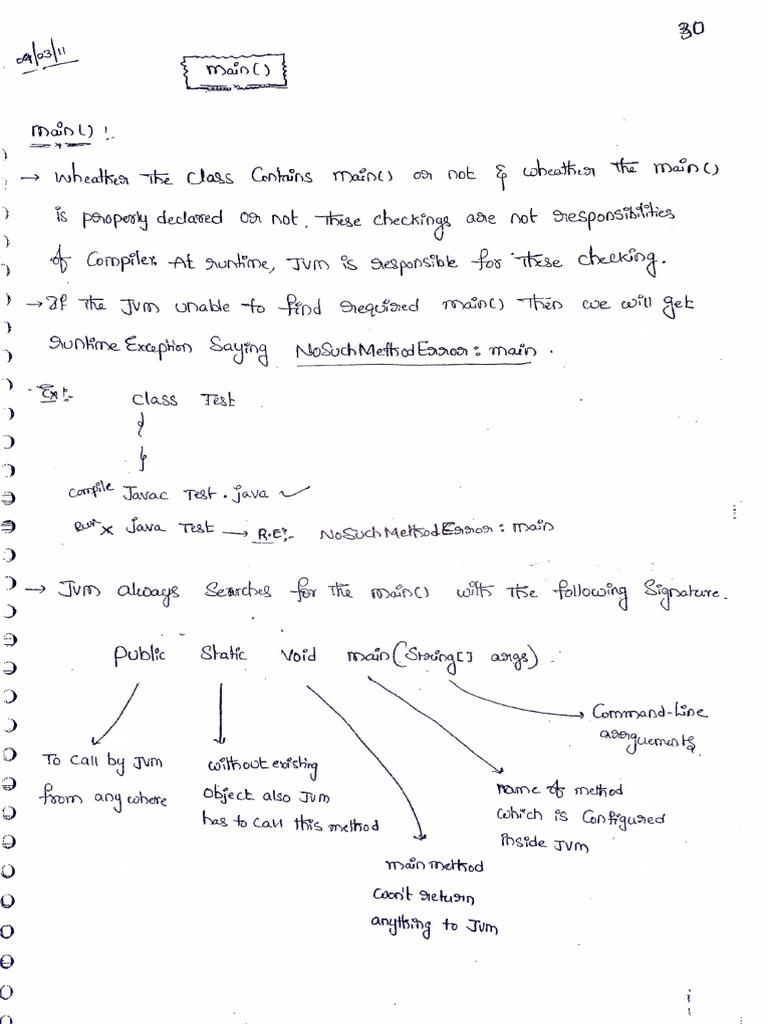 30
04/03/11
main()
main() :-
→ Wheather The Class Contains main() or not & wheather the main()
is properly declared or not, These checkings are not responsibilities
of Compiler. At runtime, JVM is responsible for These checking.
→ If the JVM unable to find required main() Then we will get
runtime Exception Saying NoSuchMethodError: main.
Ex:-
class Test
{
}
Compile Javac Test.java ✓
Run x Java Test → R.E:- NoSuchMethodError: main
→ JVM always Searches for the main() with the following Signature.
Public Static Void main(String[] args).
Command-Line
arguements
To Call by JVM
from any where
without existing
Object also JVM
has to call this method
name of method
which is Configured
inside JVM
main method
won't return
anything to JVM